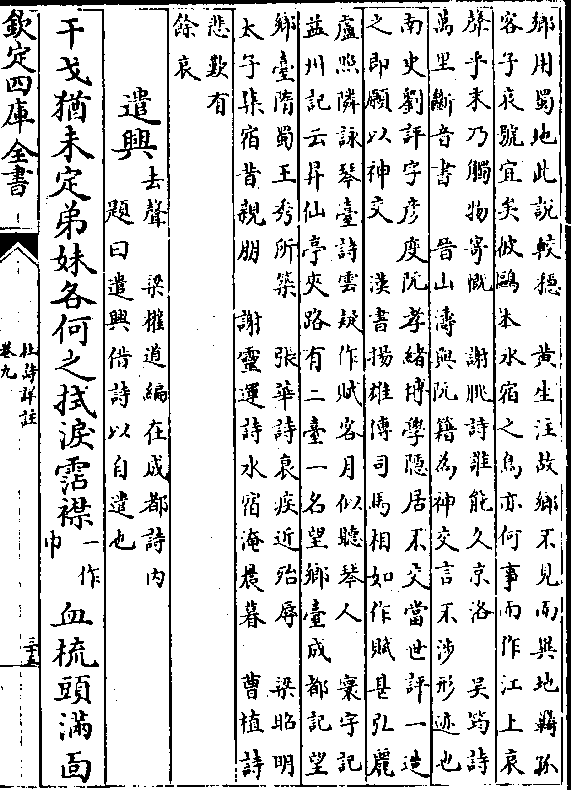 鄉用蜀地此說較穩　黄生注故鄉不見而異地羈孤
客子哀號宜矣彼鷗本水宿之鳥亦何事而作江上哀
聲乎来乃觸物寄慨　謝朓詩誰能久京洛　吴筠詩
萬里斷音書　晉山濤與阮籍為神交言不涉形迹也
南史劉評字彦度阮孝緒博學隱居不交當世評一造
之即願以神交　漢書揚雄傳司馬相如作賦甚弘麗
盧照隣詠琴臺詩雲疑作賦客月似聽琴人　寰宇記
益州記云昇仙亭夾路有二臺一名望鄉臺成都記望
鄉臺隋蜀王秀所築　張華詩哀疾近殆辱　梁昭明
太子集宿昔親朋　謝靈運詩水宿淹晨暮　曹植詩
悲歎有
餘哀
遣興
去聲　梁權道編在成都詩内
題曰遣興借詩以自遣也
干戈猶未定弟妹各何之拭淚霑襟一作巾血梳頭滿面
欽定四庫全書
杜詩詳註
卷九
三十五